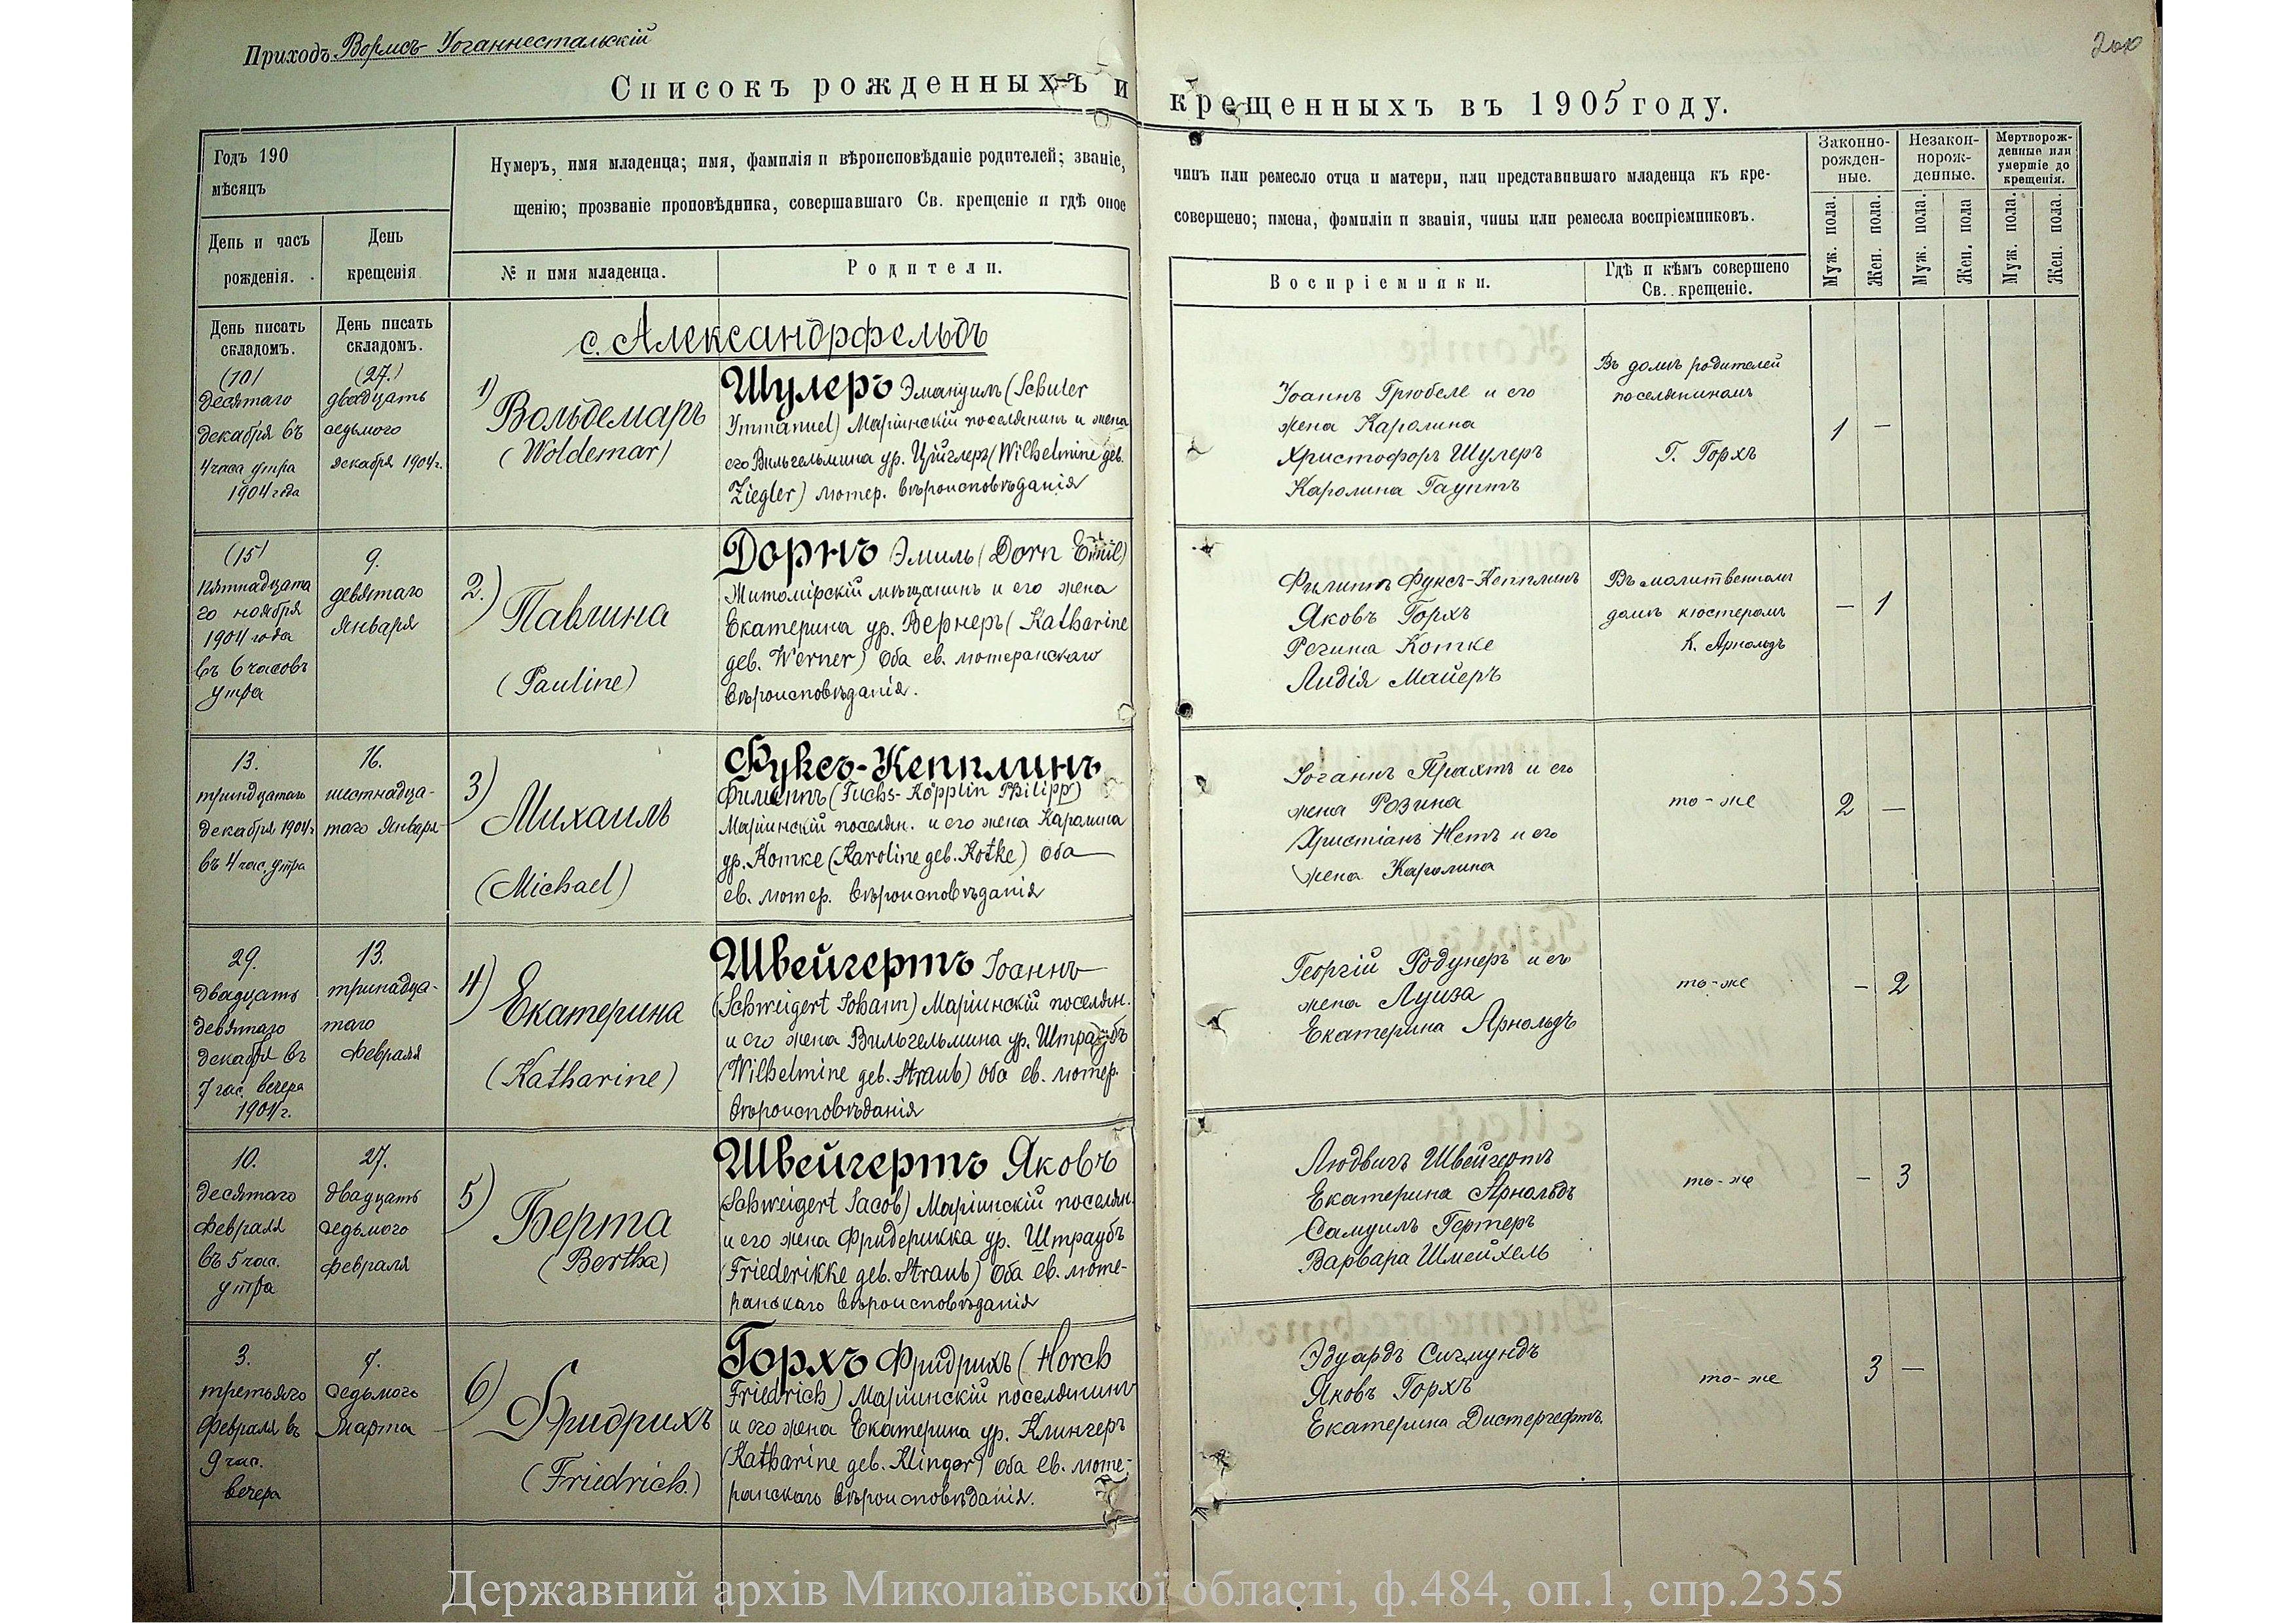 Приходъ Вормсъ-Іоганнестальскій
200
Списокъ рожденныхъ и крещенныхъ въ 1905 году.
Годъ 190
мѣсяцъ
День и часъ
рожденія.
День
крещенія
Нумеръ, имя младенца; имя, фамилія и вѣроисповѣданіе родителей; званіе,
щенію; прозваніе проповѣдника, совершавшаго Св. крещеніе и гдѣ оное
№ и имя младенца.
Родители.
чинъ или ремесло отца и матери, или представившаго младенца къ кре-
совершено; имена, фамиліи и званія, чины или ремесла воспріемниковъ.
Воспріемники.
Гдѣ и кѣмъ совершено
Св. крещеніе.
Законно-
рожден-
ные.
Незакон-
норож-
денные.
Мертворож-
денные или
умершіе до
крещенія.
Муж. пола.
Жен. пола.
Муж. пола.
Жен. пола
Муж. пола.
Жен. пола.
День писать
складомъ.
День писать
складомъ.
с. Александрфельдъ
(10)
десятаго
декабря въ
4 часа утра
1904 года
(27.)
двадцать
седьмого
декабря 1904 г.
1) Вольдемаръ
(Woldemar)
Шулеръ Эмануилъ (Schuler
Immanuel) Маріинскій поселянинъ и жена
его Вильгельмина ур. Циглеръ (Wilhelmine geb.
Ziegler) лютер. вѣроисповѣданія
Іоаннъ Грюбеле и его
жена Каролина
Христофоръ Шулеръ
Каролина Гауптъ
Въ домѣ родителей
поселяниномъ
Г. Горхъ
1 –
(15)
пятнадцата
го ноября
1904 года
въ 6 часовъ
утра
9.
девятаго
января
2.) Павлина
(Pauline)
Дорнъ Эмиль (Dorn Emil)
Житомірскій мѣщанинъ и его жена
Екатерина ур. Вернеръ (Katharine
geb. Werner) оба ев. лютеранскаго
вѣроисповѣданія.
Филиппъ Фуксъ-Кепплинъ
Яковъ Горхъ
Регина Котке
Лидія Майеръ
Въ молитвенномъ
домѣ кюстеромъ
К. Арнольдъ
– 1
13.
тринадцатаго
декабря 1904 г.
въ 4 час. утра
16.
шестнадца-
таго января
3) Михаилъ
(Michael)
Фуксъ-Кепплинъ
Филиппъ (Fuchs-Köpplin Philipp)
Маріинскій поселян. и его жена Каролина
ур. Котке (Karoline geb. Kotke) оба
ев. лютер. вѣроисповѣданія
Іоганнъ Прахтъ и его
жена Розина
Христіанъ Нетъ и его
жена Каролина
то-же
2 –
29.
двадцать
девятаго
декабря въ
7 час. вечера
1904 г.
13.
тринадца-
таго
февраля
4) Екатерина
(Katharine)
Швейгертъ Іоаннъ
(Schweigert Johann) Маріинскій поселян.
и его жена Вильгельмина ур. Штраубъ
(Wilhelmine geb. Straub) оба ев. лютер.
вѣроисповѣданія
Георгій Родунеръ и его
жена Луиза
Екатерина Арнольдъ
то-же
– 2
10.
десятаго
февраля
въ 5 час.
утра
27.
двадцать
седьмого
февраля
5) Берта
(Bertha)
Швейгертъ Яковъ
(Schweigert Jacob) Маріинскій поселян.
и его жена Фридерикка ур. Штраубъ
(Friederikke geb. Straub) оба ев. люте-
ранскаго вѣроисповѣданія
Людвигъ Швейгертъ
Екатерина Арнольдъ
Самуилъ Гертеръ
Варвара Шмейхель
то-же
– 3
3.
третьяго
февраля въ
9 час.
вечера
7.
седьмого
Марта
6) Фридрихъ
(Friedrich.)
Горхъ Фридрихъ (Horch
Friedrich) Маріинскій поселянинъ
и его жена Екатерина ур. Клингеръ
(Katharine geb. Klinger) оба ев. люте-
ранскаго вѣроисповѣданія.
Эдуардъ Сигмундъ
Яковъ Горхъ
Екатерина Дистергефтъ.
то-же
3 –
Державний архів Миколаївської області, ф.484, оп.1, спр.2355